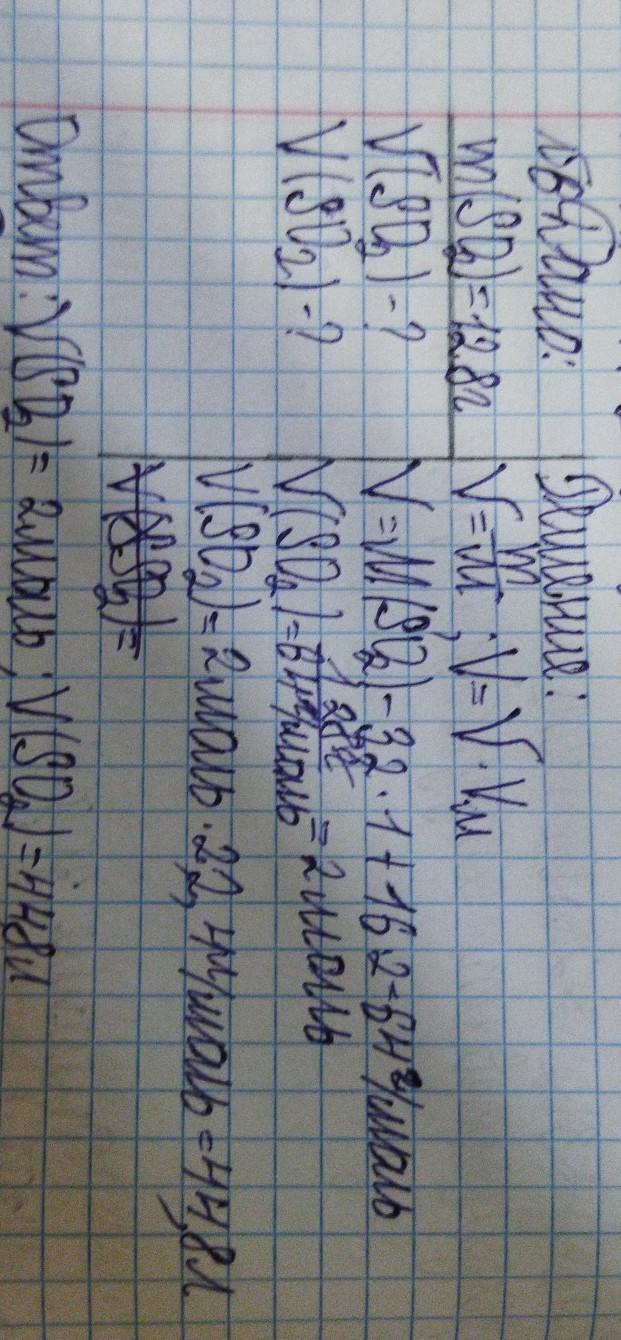 Дано:
m(SO2)=12,8г
V(SO2)-?
V(SO2)-?
Решение:
V=m/M; V=V·Vм
V=M(SO2)-32·1+16 2=64г/моль
V(SO2)=128г/64г/моль=2моль
V(SO2)=2моль·22,4л/моль=44,8л
V(SO2)=
Ответ: V(SO2)=2моль; V(SO2)=448л